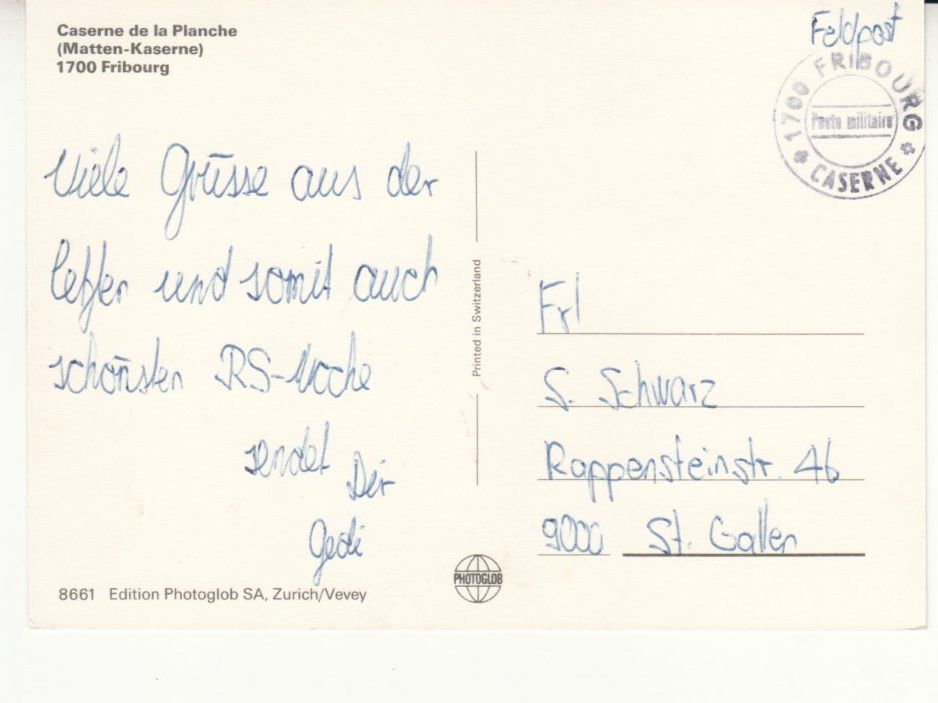 Caserne de la Planche
(Matten-Kaserne)
1700 Fribourg
Feldpost
1700 FRIBOURG
Poste militaire
* CASERNE *
Viele Grüsse aus der
letzten und somit auch
schönsten RS-Woche
sendet Dir
Gedi
Printed in Switzerland
Frl
S. Schwarz
Rappensteinstr. 46
9000 St. Gallen
8661 Edition Photoglob SA, Zurich/Vevey
PHOTOGLOB